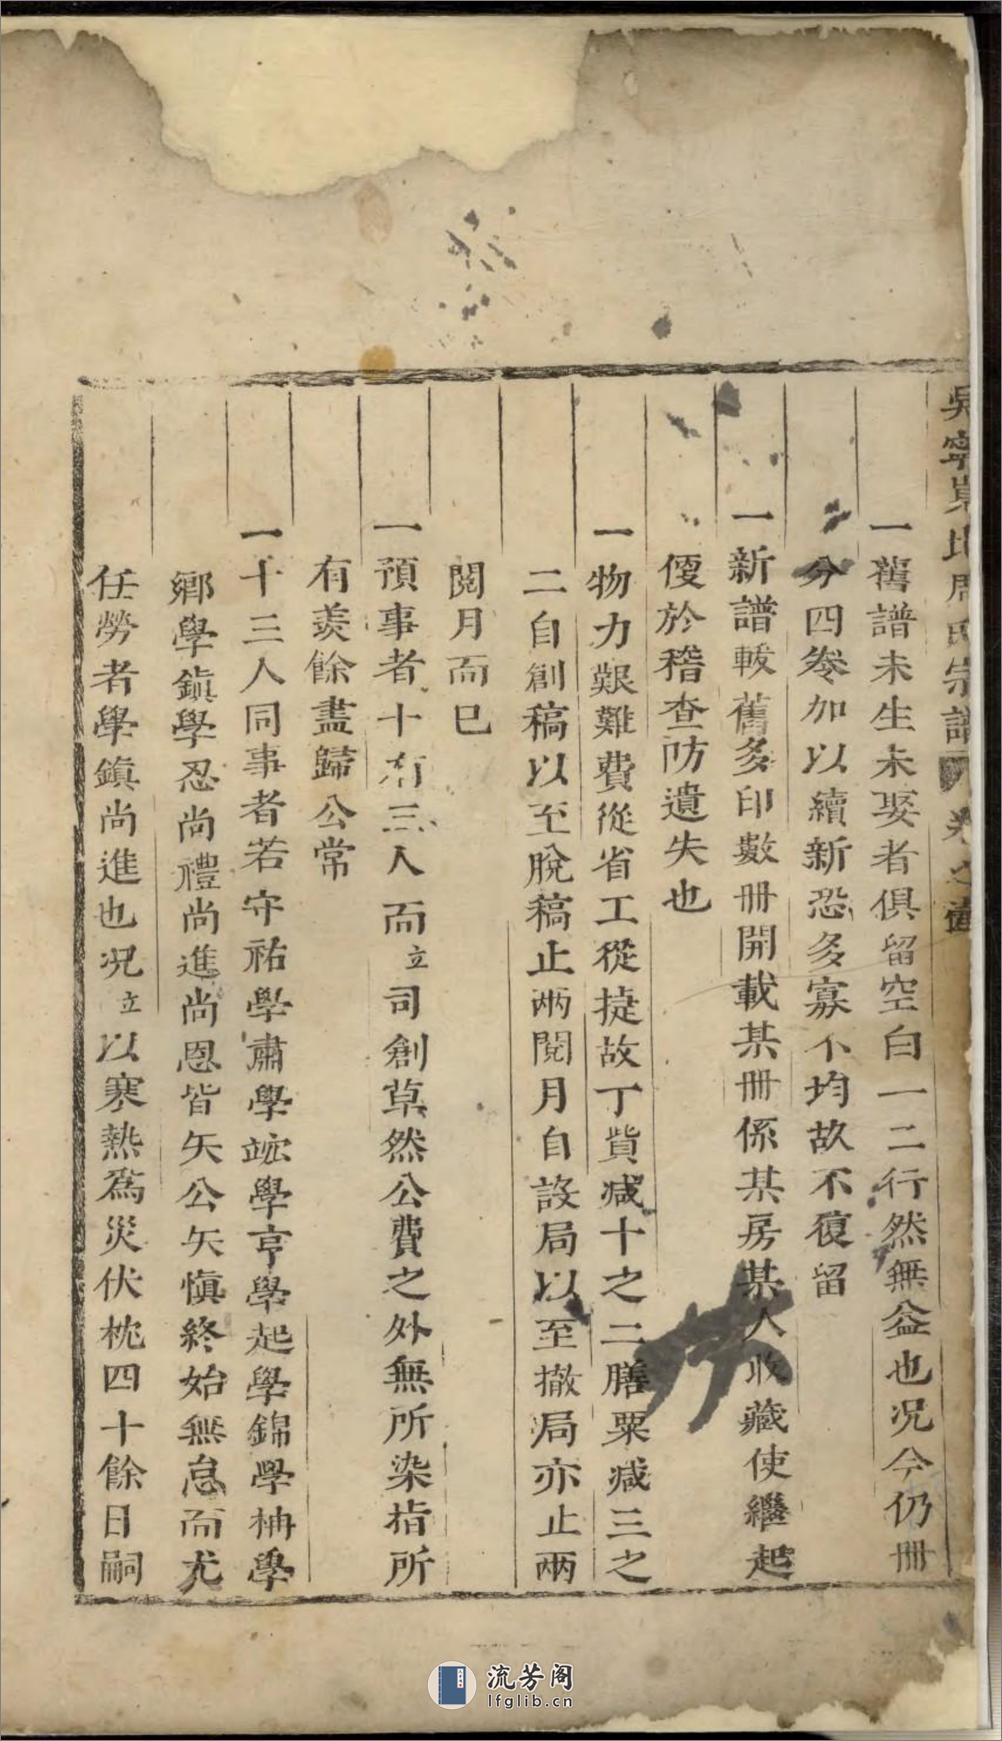 吳寧東眷周氏宗譜 卷之首
一舊譜未生未娶者俱留空白一二行然無益也况今仍冊
分四卷加以續新恐多寡不均故不復留
一新譜較舊多印數冊開載某冊係某房某人收藏使繼起
便於稽查防遺失也
一物力艱難費從省工從捷故丁貲减十之二膳粟减三之
二自創稿以至脫稿止兩閱月自設局以至撤局亦止兩
閱月而已
一預事者十有三人而立司創草然公費之外無所染指所
有羨餘盡歸公常
一十三人同事者若守祐學肅學竑學亨學起學錦學柟學
鄉學鎮學忍尚禮尚進尚恩皆矢公矢慎終始無怠而尤
任勞者學鎮尚進也况立以寒熱為災伏枕四十餘日嗣
流芳阁
lfglib.cn